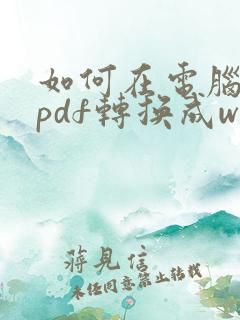 如何在電腦
pdf轉換成w
蔣見信
未經同意禁止轉載